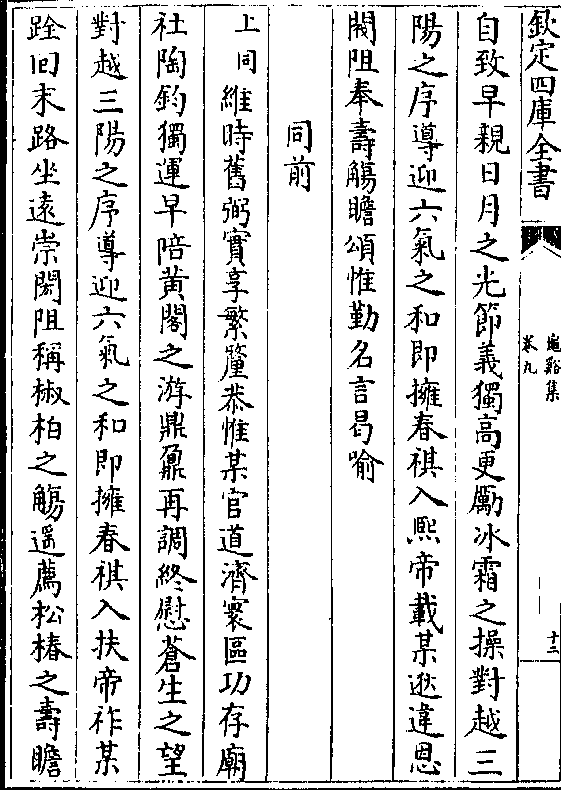 欽定四庫全書
龜谿集
卷九
十二
自致早親日月之光節義獨高更勵冰霜之操對越三
陽之序導迎六氣之和即擁春祺入熙帝載某逖違恩
閥阻奉壽觴瞻頌惟勤名言曷喻
同前
上同維時舊弼實享繁釐恭惟某官道濟寰區功存廟
社陶鈞獨運早陪黃閣之游鼎鼐再調終慰蒼生之望
對越三陽之序導迎六氣之和即擁春祺入扶帝祚某
跧回末路坐遠崇閎阻稱椒柏之觴遥薦松椿之壽瞻